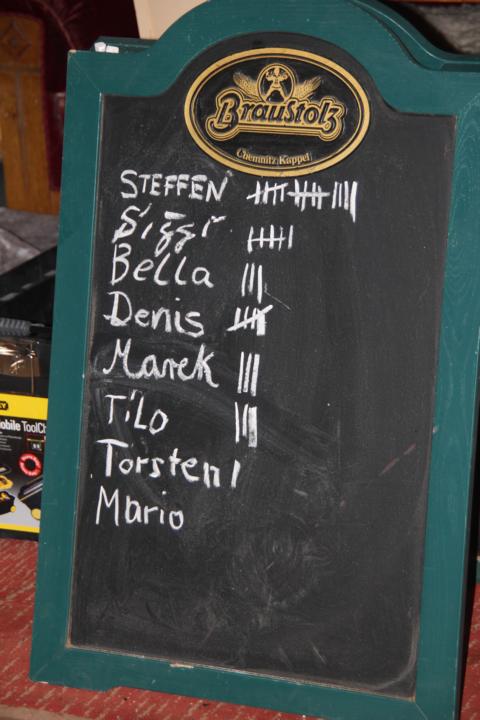 Braustolz
Chemnitz Kappel
STEFFEN 卌 卌 ||||
Siggi 卌 |
Bella |||
Denis 卌
Marek |||
Tilo |||
Torsten |
Mario